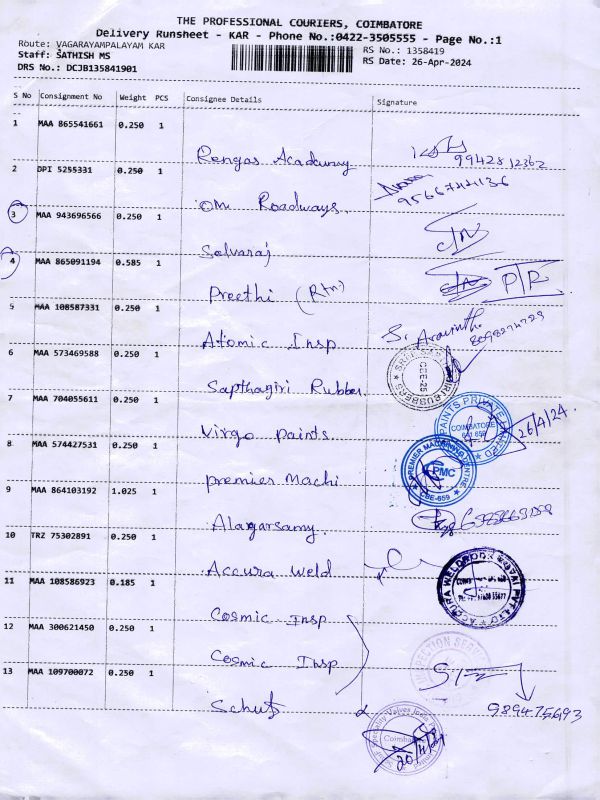 THE PROFESSIONAL COURIERS, COIMBATORE
Delivery Runsheet - KAR - Phone No.:0422-3505555 - Page No.:1
Route: VAGARAYAMPALAYAM KAR
Staff: SATHISH MS
DRS No.: DCJB135841901
RS No.: 1358419
RS Date: 26-Apr-2024
S No Consignment No Weight PCS Consignee Details Signature
1 MAA 865541661 0.250 1
Rengas Academy 9942812362
2 DPI 5255331 0.250 1
OM Roadways 9566744136
3 MAA 943696566 0.250 1
Selvaraj C/N
4 MAA 865091194 0.585 1
Preethi (Rtn) P/R
5 MAA 108587331 0.250 1
Atomic Insp S. Aravinth
6 MAA 573469588 0.250 1
Sapthagiri Rubber
7 MAA 704055611 0.250 1
Virgo paints 26/4/24
PAINTS PRIVATE
COIMBATORE
641 659
8 MAA 574427531 0.250 1
premier Machi
PREMIER
PMC
CBE-659
9 MAA 864103192 1.025 1
Alagarsamy
10 TRZ 75302891 0.250 1
Accura Weld
ACCURA WELDROD
11 MAA 108586923 0.185 1
Cosmic Insp
12 MAA 300621450 0.250 1
Cosmic Insp
INSPECTION
13 MAA 109700072 0.250 1
Schuf 9894756 93
Speciality Valves